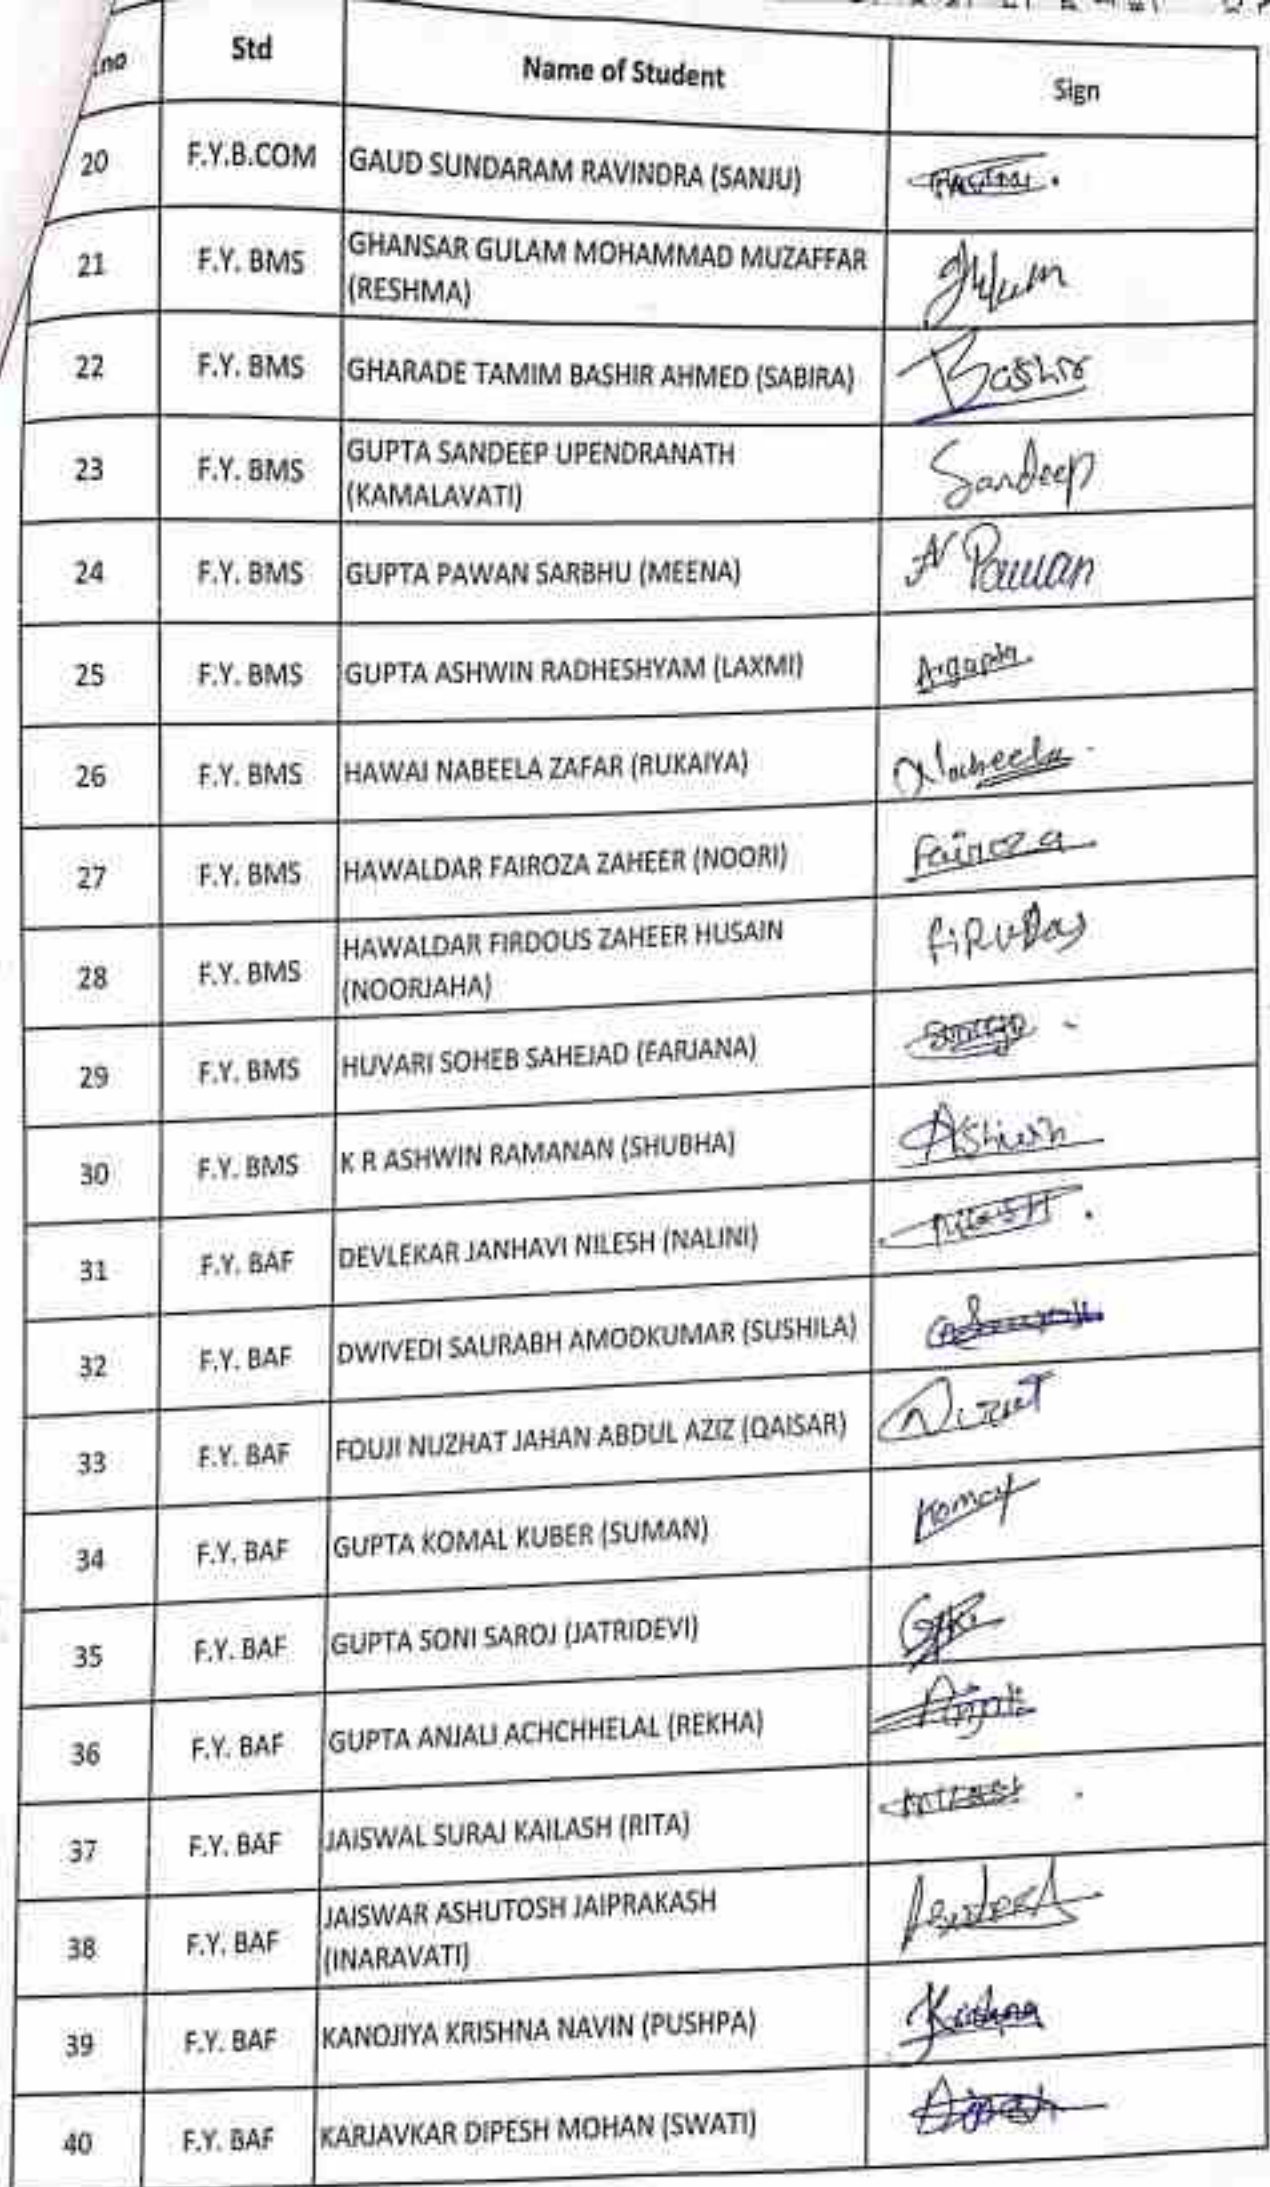 Std Name of Student Sign
20 F.Y.B.COM GAUD SUNDARAM RAVINDRA (SANJU)
21 F.Y. BMS GHANSAR GULAM MOHAMMAD MUZAFFAR
(RESHMA)
22 F.Y. BMS GHARADE TAMIM BASHIR AHMED (SABIRA) Bashir
23 F.Y. BMS GUPTA SANDEEP UPENDRANATH
(KAMALAVATI) Sandeep
24 F.Y. BMS GUPTA PAWAN SARBHU (MEENA) Pawan
25 F.Y. BMS GUPTA ASHWIN RADHESHYAM (LAXMI) A.gupta
26 F.Y. BMS HAWAI NABEELA ZAFAR (RUKAIYA) Nabeela
27 F.Y. BMS HAWALDAR FAIROZA ZAHEER (NOORI) Fairoza
28 F.Y. BMS HAWALDAR FIRDOUS ZAHEER HUSAIN
(NOORJAHA)
29 F.Y. BMS HUVARI SOHEB SAHEJAD (FARJANA)
30 F.Y. BMS K R ASHWIN RAMANAN (SHUBHA) Ashwin
31 F.Y. BAF DEVLEKAR JANHAVI NILESH (NALINI) NILESH
32 F.Y. BAF DWIVEDI SAURABH AMODKUMAR (SUSHILA)
33 F.Y. BAF FOUJI NUZHAT JAHAN ABDUL AZIZ (QAISAR)
34 F.Y. BAF GUPTA KOMAL KUBER (SUMAN) Komal
35 F.Y. BAF GUPTA SONI SAROJ (JATRIDEVI)
36 F.Y. BAF GUPTA ANJALI ACHCHHELAL (REKHA) Anjali
37 F.Y. BAF JAISWAL SURAJ KAILASH (RITA)
38 F.Y. BAF JAISWAR ASHUTOSH JAIPRAKASH
(INARAVATI)
39 F.Y. BAF KANOJIYA KRISHNA NAVIN (PUSHPA) Krishna
40 F.Y. BAF KARJAVKAR DIPESH MOHAN (SWATI)